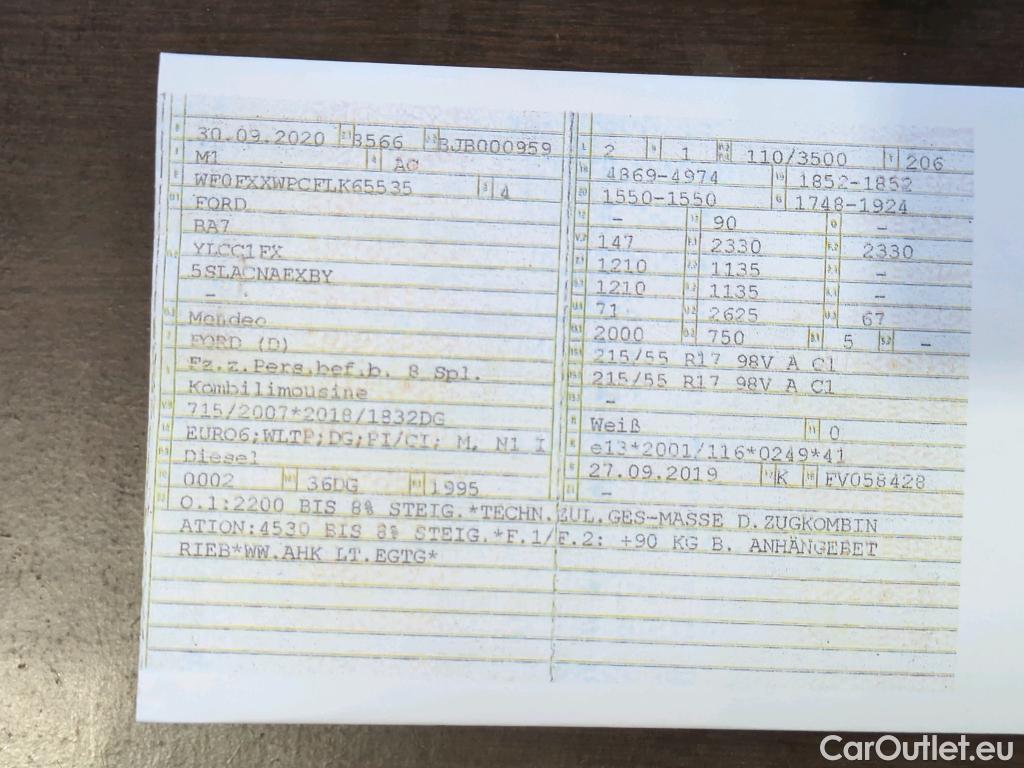 30.09.2020 8566 BJB000959
M1 AC
WF0FXXWPCFLK65535 4
FORD
BA7
YLCC1FX
5SLACNAFXBY
-
Mondeo
FORD (D)
Fz.z.Pers.bef.b. 8 Spl.
Kombilimousine
715/2007*2018/1832DG
EURO6;WLTP;DG;PI/CI; M, N1 I
Diesel
0002 36DG 1995
2 1 110/3500 206
4869-4974 1852-1852
1550-1550 1748-1924
- 90 -
147 2330 2330
1210 1135 -
1210 1135 -
71 2625 67
2000 750 5 -
215/55 R17 98V A C1
215/55 R17 98V A C1
-
Weiß 0
e13*2001/116*0249*41
27.09.2019 K FV058428
-
O.1:2200 BIS 8% STEIG.*TECHN.ZUL.GES-MASSE D.ZUGKOMBIN
ATION:4530 BIS 8% STEIG.*F.1/F.2: +90 KG B. ANHÄNGEBET
RIEB*WW.AHK LT.EGTG*
CarOutlet.eu